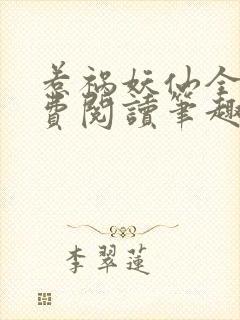 惹禍妖仙全
費閱讀筆趣
李翠蓮